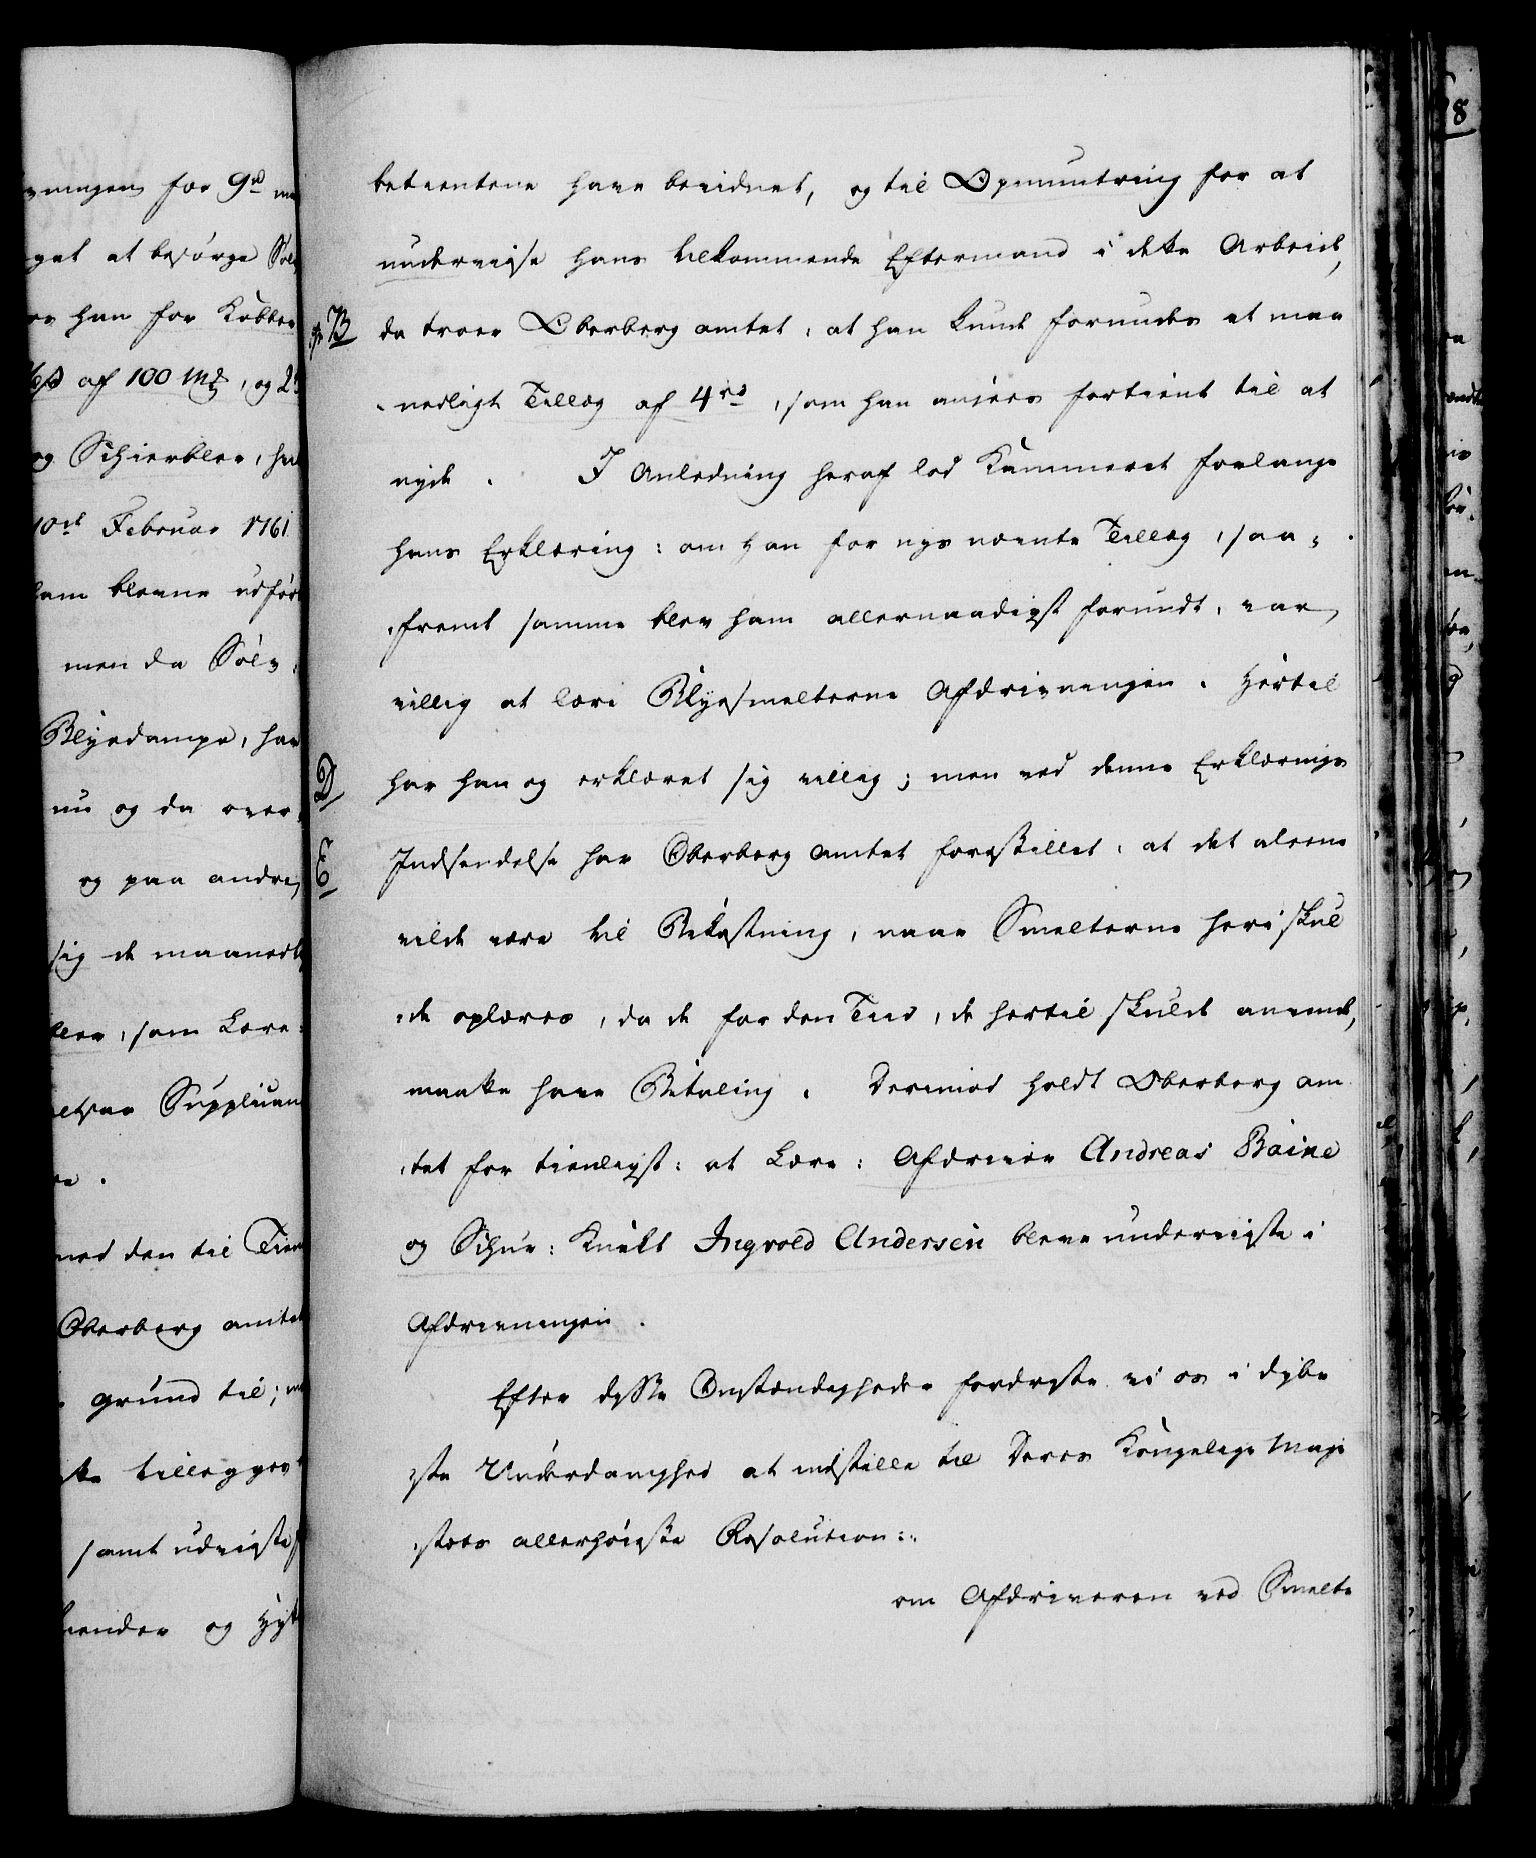 vningen for 9rd
get at besørge Søl
or han for Kobber
af 100 Mk, og 2
og Schierbler,
10de Februar 1761
ham blevne udfør
men da Sølv-
Blyedampe, har
nu og da over-
og paa andre
sig de maanedl
bler, som Lære-
Supplican
den til
Oberberg amtet
grund til;
tillegges
samt udviste
hender og Hyt
betientene have bevidnet, og til Opmuntring for at
underviise hans tilkommende Eftermand i dette Arbeid,
B da troer Oberberg amtet, at han kunde forundes et maa
-nedligt Tillæg af 4rd, som han ansees fortient til at
nyde. I Anledning heraf lod Kammeret forlange
hans Erklæring: om han for nys nævnte Tillæg, saa-
-fremt samme blev ham allernaadigst forundt, var
villig at lære Blyesmelterne Afdrivningen. Hertil
D har han og erklæret sig villig; men ved denne Erklærings
E Indsendelse har Oberberg Amtet forestillet, at det alene
vilde være til Bekostning, naar Smelterne heri skul
-de oplæres, da de for den Tiid, de hertil skulde anvende,
maatte have Betaling. Derimod holdt Oberberg am
-tet for tienligst: at Lære-Afdriver Andreas Baine
og Schur-Knækt Ingvold Andersen bleve underviiste i
Afdrivningen.
Efter disse Omstændigheder fordriste vi os i dybe
-ste Underdanighed at indstille til Deres Kongelige Maje
-stæts allerhøieste Resolution:
om Afdriveren ved Smelte